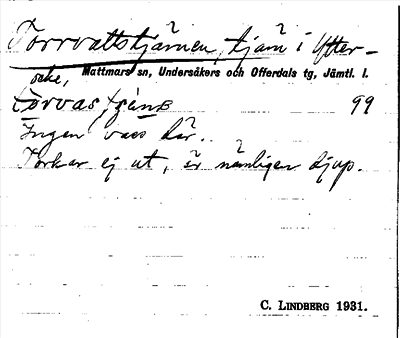 Torrvattstjärnen, tjärn i Ytter-
ocke, Mattmars sn, Undersåkers och Offerdals tg, Jämtl. l.
99
Ingen vass där.
Torkar ej ut, är nämligen djup.
C. LINDBERG 1931.